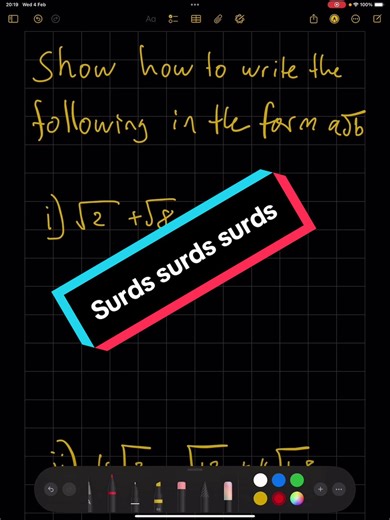 20:19 Wed 4 Feb
90%
Show how to write the
following in the form a√b
i) √2 + √8
Surds surds surds
ii)